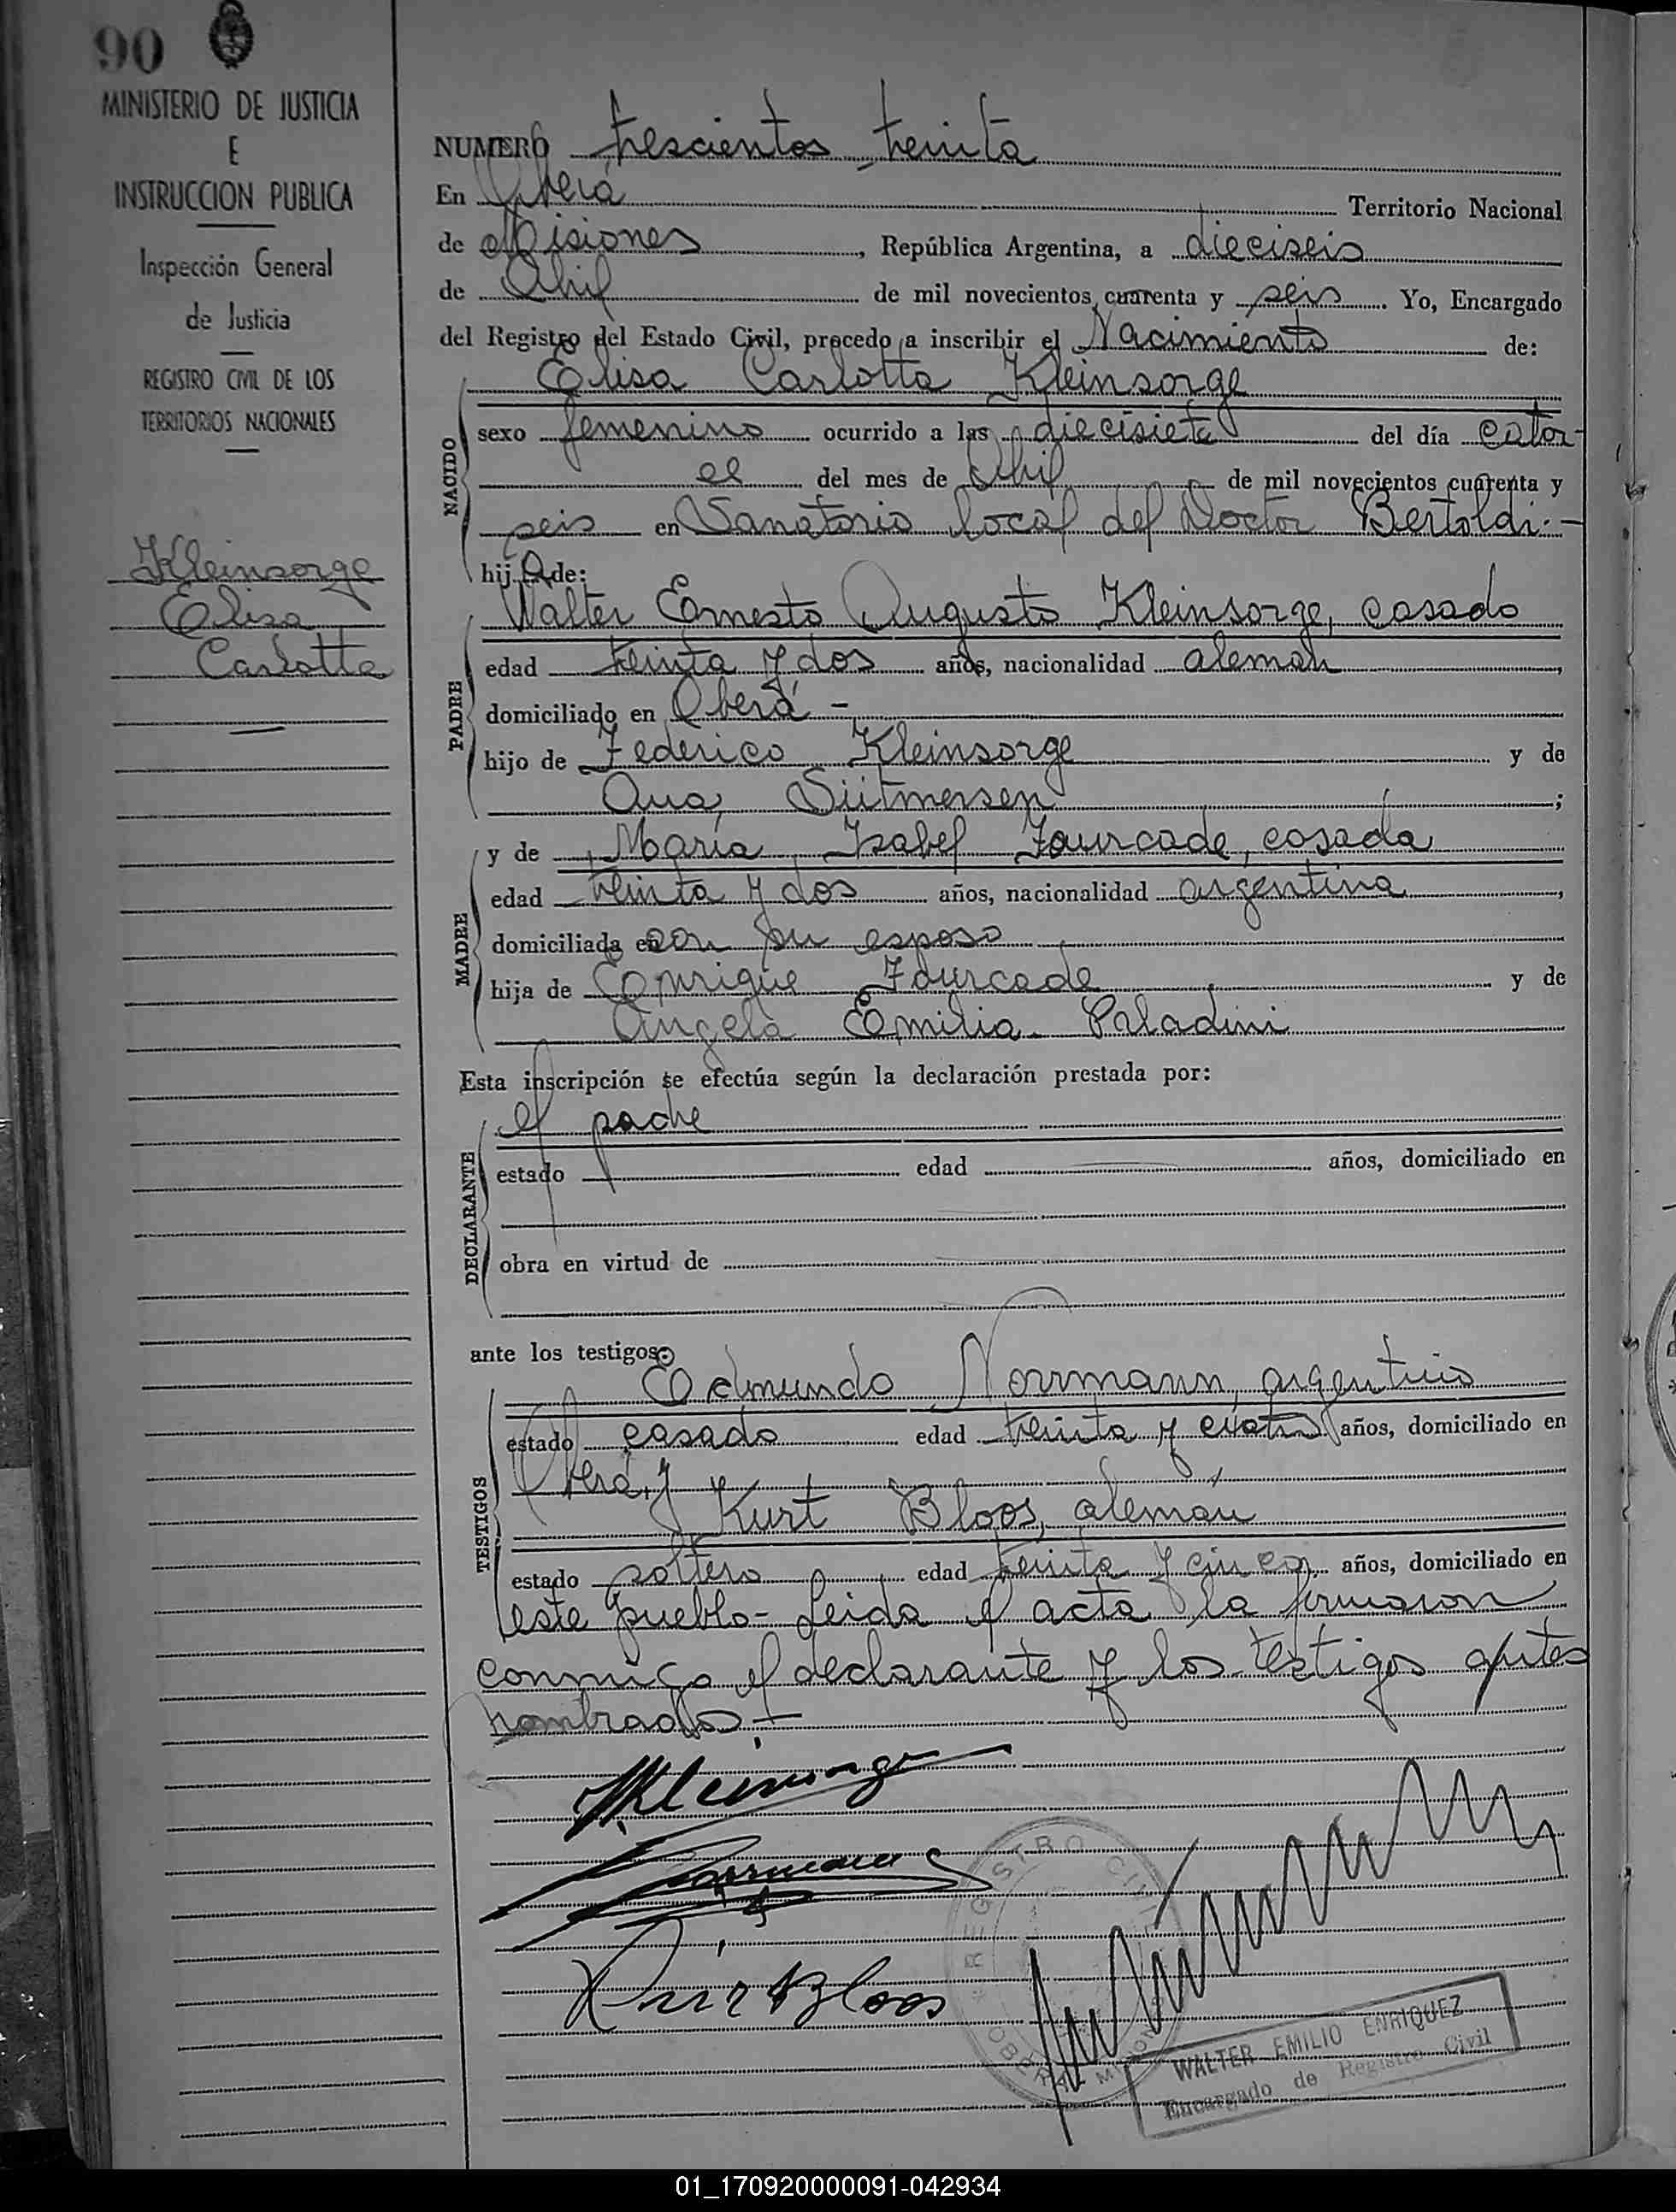 90
MINISTERIO DE JUSTICIA
E
INSTRUCCION PUBLICA
Inspección General
de Justicia
REGISTRO CIVIL DE LOS
TERRITORIOS NACIONALES
Kleinsorge
Elisa
Carlotta
NUMERO trescientos treinta
En Oberá Territorio Nacional
de Misiones, República Argentina, a dieciseis
de Abril de mil novecientos cuarenta y seis. Yo, Encargado
del Registro del Estado Civil, procedo a inscribir el Nacimiento de:
Elisa Carlotta Kleinsorge
NACIDO
sexo femenino ocurrido a las diecisiete del día cator-
ce del mes de Abril de mil novecientos cuarenta y
seis en Sanatorio local del Doctor Bertoldi.-
hija de:
Walter Ernesto Augusto Kleinsorge, casado
PADRE
edad treinta y dos años, nacionalidad alemán,
domiciliado en Oberá -
hijo de Federico Kleinsorge y de
Ana Sütmersen;
y de María Isabel Fourcade, casada
MADRE
edad treinta y dos años, nacionalidad argentina,
domiciliada en con su esposo
hija de Enrique Fourcade y de
Angela Emilia Paladini
Esta inscripción se efectúa según la declaración prestada por:
el padre
DECLARANTE
estado edad años, domiciliado en
obra en virtud de
ante los testigos:
Edmundo Norrmann, argentino
TESTIGOS
estado casado edad treinta y cuatro años, domiciliado en
Oberá, y
Kurt Bloos, alemán
estado soltero edad treinta y cinco años, domiciliado en
este pueblo- Leída el acta la firmaron
conmigo el declarante y los testigos antes
nombrados.-
WKleinsorge
Norrmann
Kurt Bloos
REGISTRO CIVIL
OBERA - MISIONES
WALTER EMILIO ENRIQUEZ
Encargado de Registro Civil
01_170920000091-042934